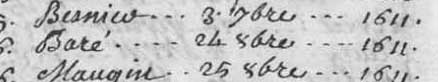 9. Besnier .... 3. 7bre .... 1611.
6. Baré ..... 24 8bre .... 1611.
6. Maugin .. 25 8bre .... 1611.